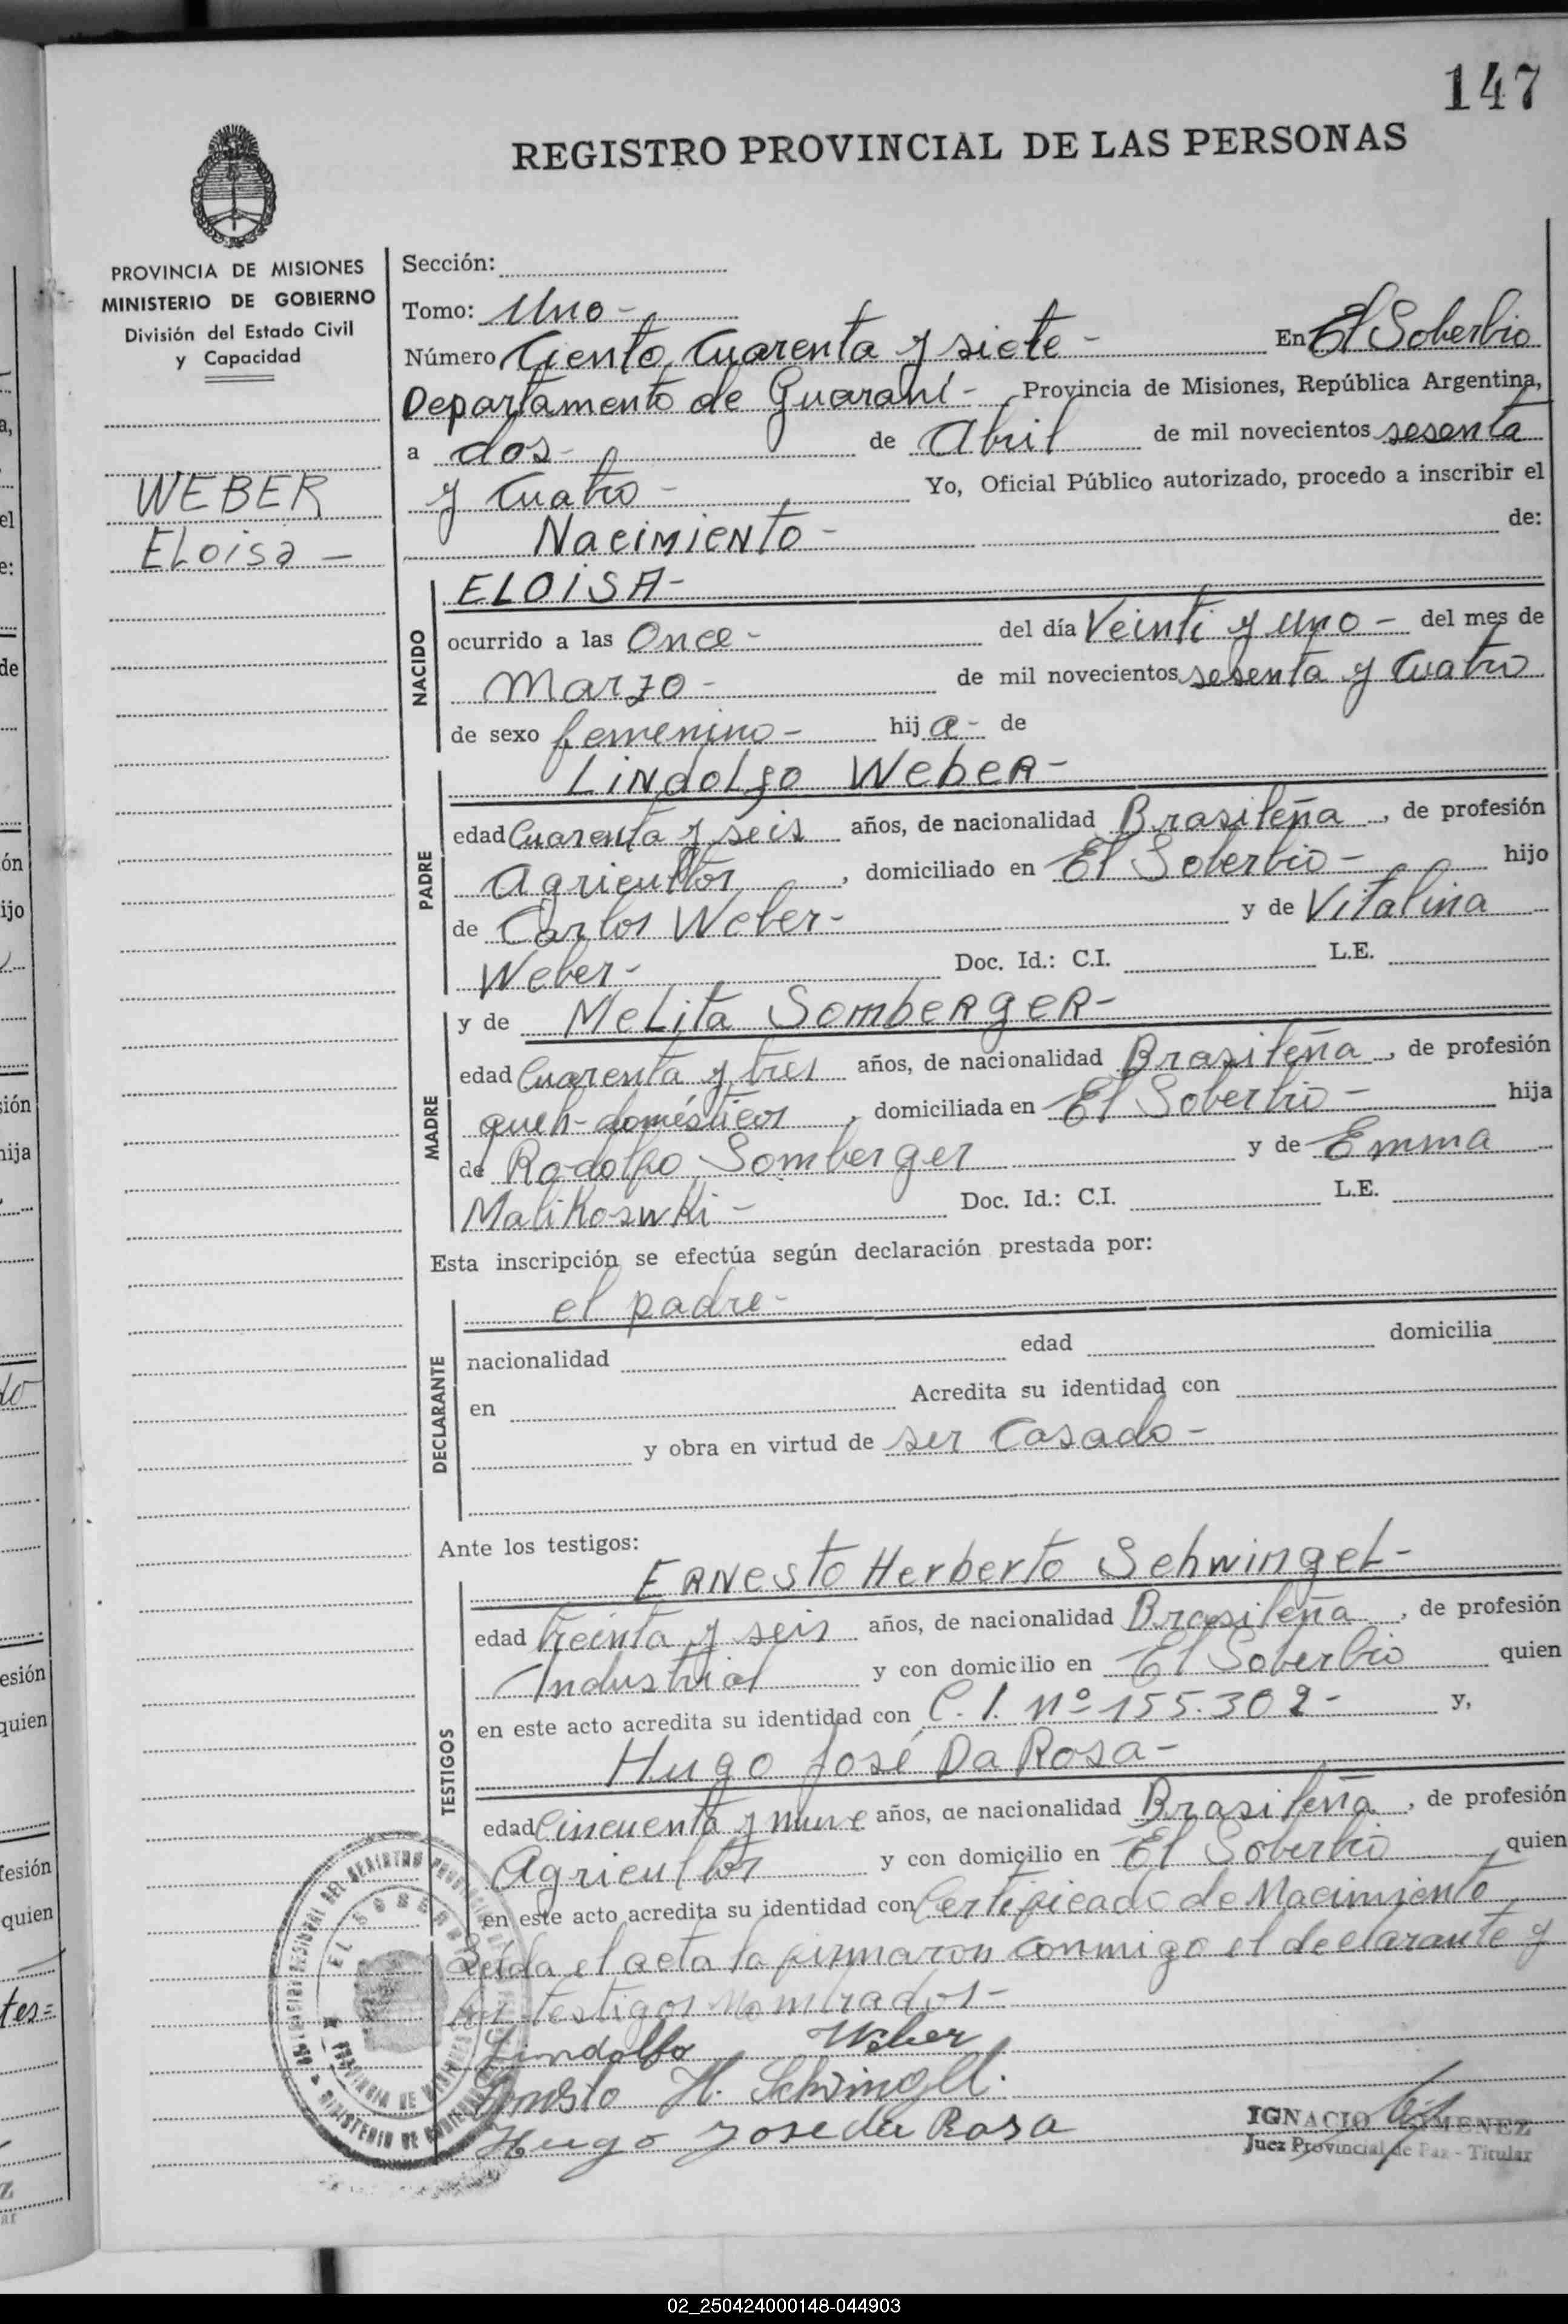 147
REGISTRO PROVINCIAL DE LAS PERSONAS
PROVINCIA DE MISIONES
MINISTERIO DE GOBIERNO
División del Estado Civil
y Capacidad
WEBER
ELoisa -
Sección:
Tomo: Uno -
Número Ciento Cuarenta y siete - En El Soberbio
Departamento de Guaraní - Provincia de Misiones, República Argentina,
a dos - de Abril de mil novecientos sesenta
y Cuatro - Yo, Oficial Público autorizado, procedo a inscribir el
Nacimiento - de:
NACIDO
ELOISA -
ocurrido a las Once - del día Veinti y uno - del mes de
Marzo - de mil novecientos sesenta y Cuatro
de sexo femenino - hij a - de
PADRE
Lindolfo Weber -
edad Cuarenta y seis años, de nacionalidad Brasileña, de profesión
Agricultor, domiciliado en El Soberbio - hijo
de Carlos Weber - y de Vitalina
Weber - Doc. Id.: C.I. L.E.
MADRE
y de Melita Somberger -
edad Cuarenta y tres años, de nacionalidad Brasileña, de profesión
queh-domésticos, domiciliada en El Soberbio - hija
de Rodolfo Somberger y de Emma
Malikoswki - Doc. Id.: C.I. L.E.
Esta inscripción se efectúa según declaración prestada por:
DECLARANTE
el padre -
nacionalidad edad domicilia
en Acredita su identidad con
y obra en virtud de ser Casado -
Ante los testigos:
TESTIGOS
Ernesto Herberto Schwingel -
edad treinta y seis años, de nacionalidad Brasileña, de profesión
Industrial y con domicilio en El Soberbio quien
en este acto acredita su identidad con C. I. Nº 155.302 - y,
Hugo José Da Rosa -
edad Cincuenta y nueve años, de nacionalidad Brasileña, de profesión
Agricultor y con domicilio en El Soberbio quien
en este acto acredita su identidad con Certificado de Nacimiento
Leída el acta la firmaron conmigo el declarante y
los testigos nombrados -
Lindolfo Weber
Ernesto H. Schwingel.
Hugo Jose da Rosa
IGNACIO GIMENEZ
Juez Provincial de Paz - Titular
02_250424000148-044903